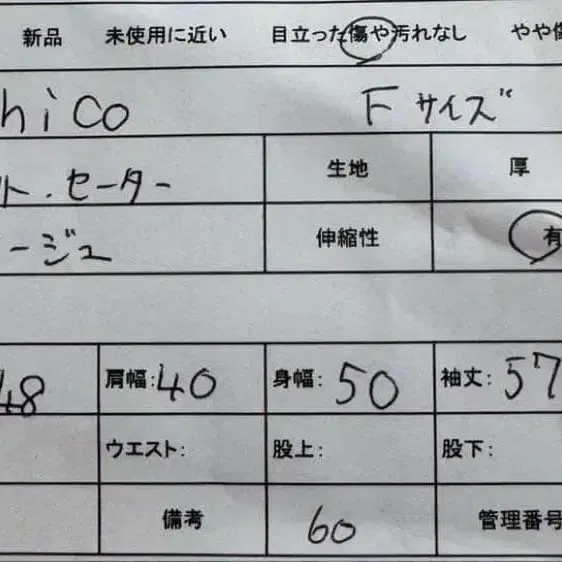 新品 未使用に近い 目立った傷や汚れなし やや傷
hico Fサイズ
ト・セーター 生地 厚
ージュ 伸縮性 有
48 肩幅:40 身幅:50 袖丈:57
ウエスト: 股上: 股下:
備考 60 管理番号